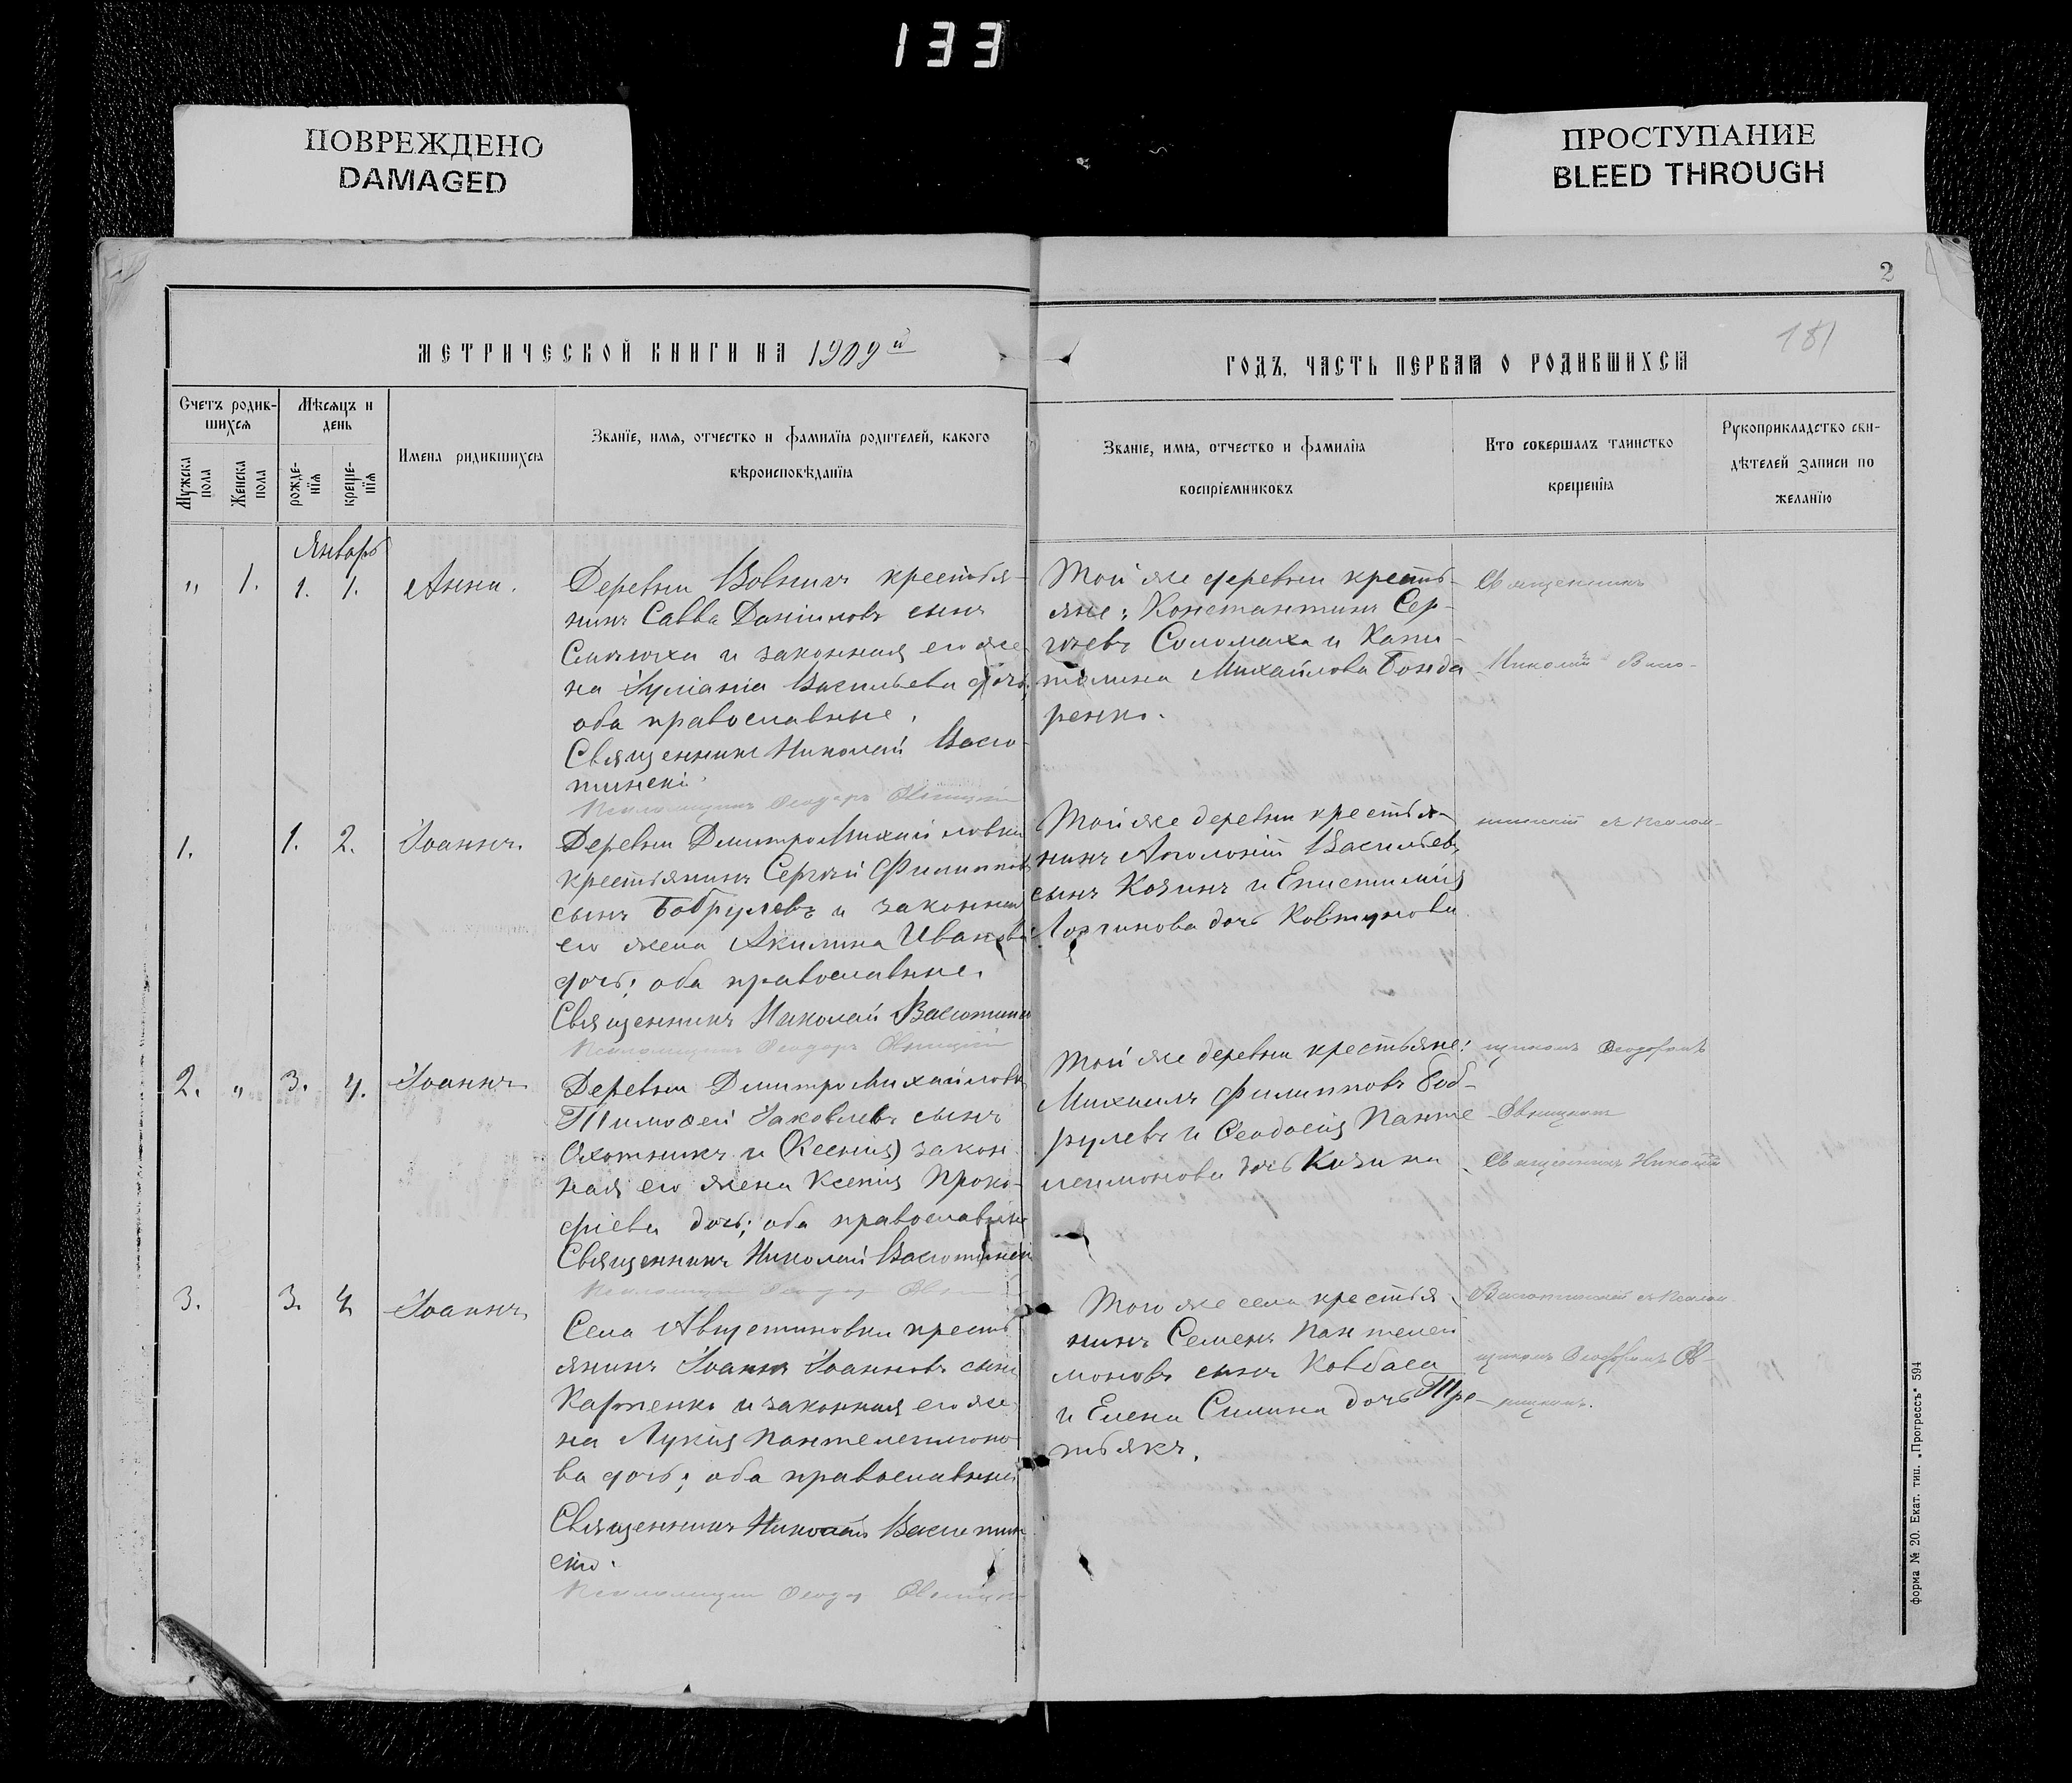 133
ПОВРЕЖДЕНО
DAMAGED
ПРОСТУПАНИЕ
BLEED THROUGH
2
181
МЕТРИЧЕСКОЙ КНИГИ НА 1909й
ГОДЪ, ЧАСТЬ ПЕРВАЯ О РОДИВШИХСЯ
Счетъ родив-
шихся
Мужска
пола
Женска
пола
Мѣсяцъ и
день
рожде-
нія
креще-
нія
Имена родившихся
Званіе, имя, отчество и фамилія родителей, какого
вѣроисповѣданія
Званіе, имя, отчество и фамилія
воспріемниковъ
Кто совершалъ таинство
крещенія
Рукоприкладство сви-
дѣтелей записи по
желанію
Январь
" 1. 1. 1. Анна.
Деревни Вовнигъ крестья-
нинъ Савва Даніиловъ сынъ
и законная его же
на Іуліанія Васильева дочь,
оба православные.
Священникъ Николай Васю-
тинскі
Псаломщикъ Ѳеодоръ
Той же деревни крестья-
яне: Константинъ Сер-
гѣевъ Соломаха и Капи-
толина Михайлова Бонда
ренко.
Священникъ
Николай Васю-
1. 1. 2. Іоаннъ.
Деревни ДмитроМихайловки
крестьянинъ Сергѣй Филипповъ
сынъ Бобрулевъ и законная
его жена Акилина Иванова
дочь; оба православные.
Священникъ Николай Васютин
Псаломщикъ Ѳеодоръ
Той же деревни крестья-
нинъ Аполоній Васильевъ
сынъ Козинъ и Епистимія
Логинова дочь Ковтунова
тинскій съ псалом-
2. " 3. 4. Іоаннъ
Деревни ДмитроМихайловки
Тимоѳей Іаковлевъ сынъ
Охотникъ и (Ксенія) закон
ная его жена Ксенія Проко-
фіева дочь; оба православные
Священникъ Николай Васютинскі
Той же деревни крестьяне:
Михаилъ Филипповъ Боб-
рулевъ и Ѳеодосія Панте
леимонова дочь Козина
щикомъ Ѳеодоромъ
Священникъ Николай
3. 3. 4. Іоаннъ.
Села Августиновки кресть
янинъ Іоаннъ Іоанновъ сынъ
Карпенко и законная его же
на Лукія Пантелеимоно
ва дочь; оба православные
Священникъ Николай Васютин
скій.
Псаломщик Ѳеодор
Того же села крестья
нинъ Семенъ Пантелеи
моновъ сынъ Ковбаса
и Елена Силина дочь Тре-
тьякъ.
Васютинскій съ псалом
щикомъ Ѳеодоромъ
форма № 20. Екат. тип. „Прогрессъ" 594